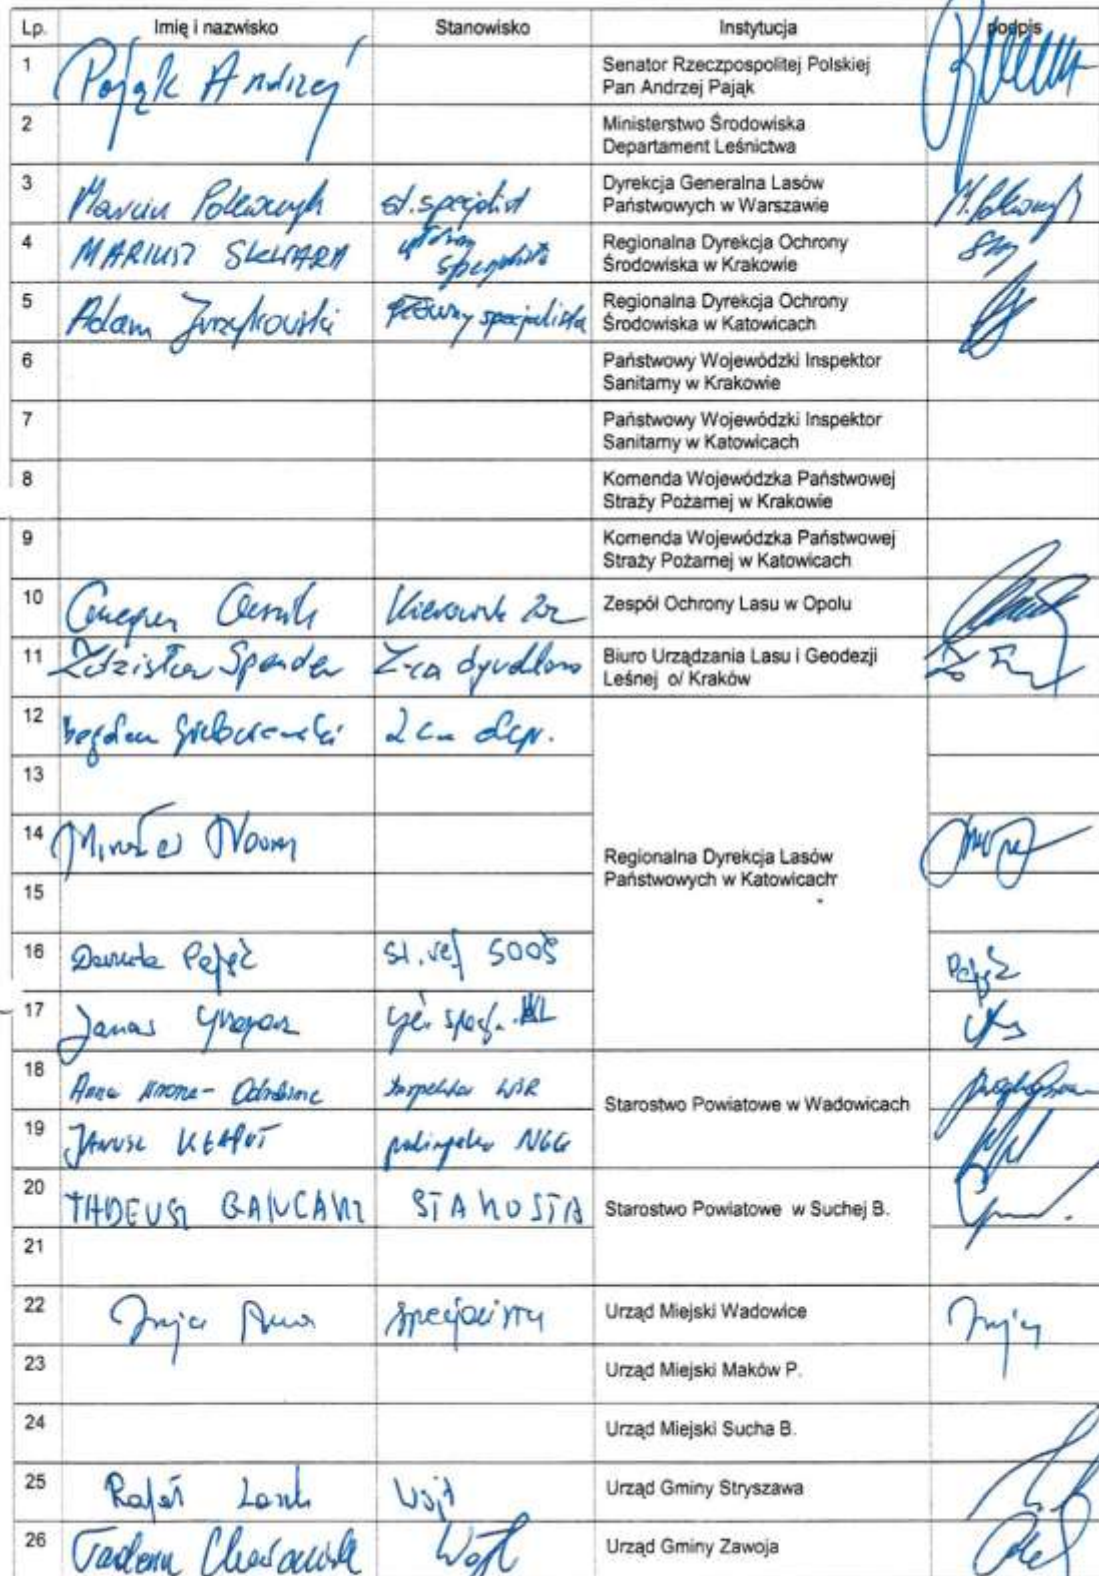 Lp. Imię i nazwisko Stanowisko Instytucja podpis
1 Pająk Andrzej Senator Rzeczpospolitej Polskiej
Pan Andrzej Pająk
2 Ministerstwo Środowiska
Departament Leśnictwa
3 Marcin st. specjalist Dyrekcja Generalna Lasów
Państwowych w Warszawie
4 MARIUSZ SKWARA główny specjalista Regionalna Dyrekcja Ochrony
Środowiska w Krakowie
5 Adam główny specjalista Regionalna Dyrekcja Ochrony
Środowiska w Katowicach
6 Państwowy Wojewódzki Inspektor
Sanitarny w Krakowie
7 Państwowy Wojewódzki Inspektor
Sanitarny w Katowicach
8 Komenda Wojewódzka Państwowej
Straży Pożarnej w Krakowie
9 Komenda Wojewódzka Państwowej
Straży Pożarnej w Katowicach
10 Kierownik Zespół Ochrony Lasu w Opolu
11 Zdzisław Spendel Z-ca dyrektora Biuro Urządzania Lasu i Geodezji
Leśnej o/ Kraków
12 bogdan
13
14
Regionalna Dyrekcja Lasów
Państwowych w Katowicach
15
16 Danuta Pająk st. ref SOOŚ Pająk
17 Janas Grzegorz
18 Anna Inspektor
Starostwo Powiatowe w Wadowicach
19 JANUSZ KŁAPUT podinspektor
20 TADEUSZ GANCARZ STAROSTA Starostwo Powiatowe w Suchej B.
21
22 Anna specjalista Urząd Miejski Wadowice
23 Urząd Miejski Maków P.
24 Urząd Miejski Sucha B.
25 Rafał Lasek Wójt Urząd Gminy Stryszawa
26 Tadeusz Wójt Urząd Gminy Zawoja